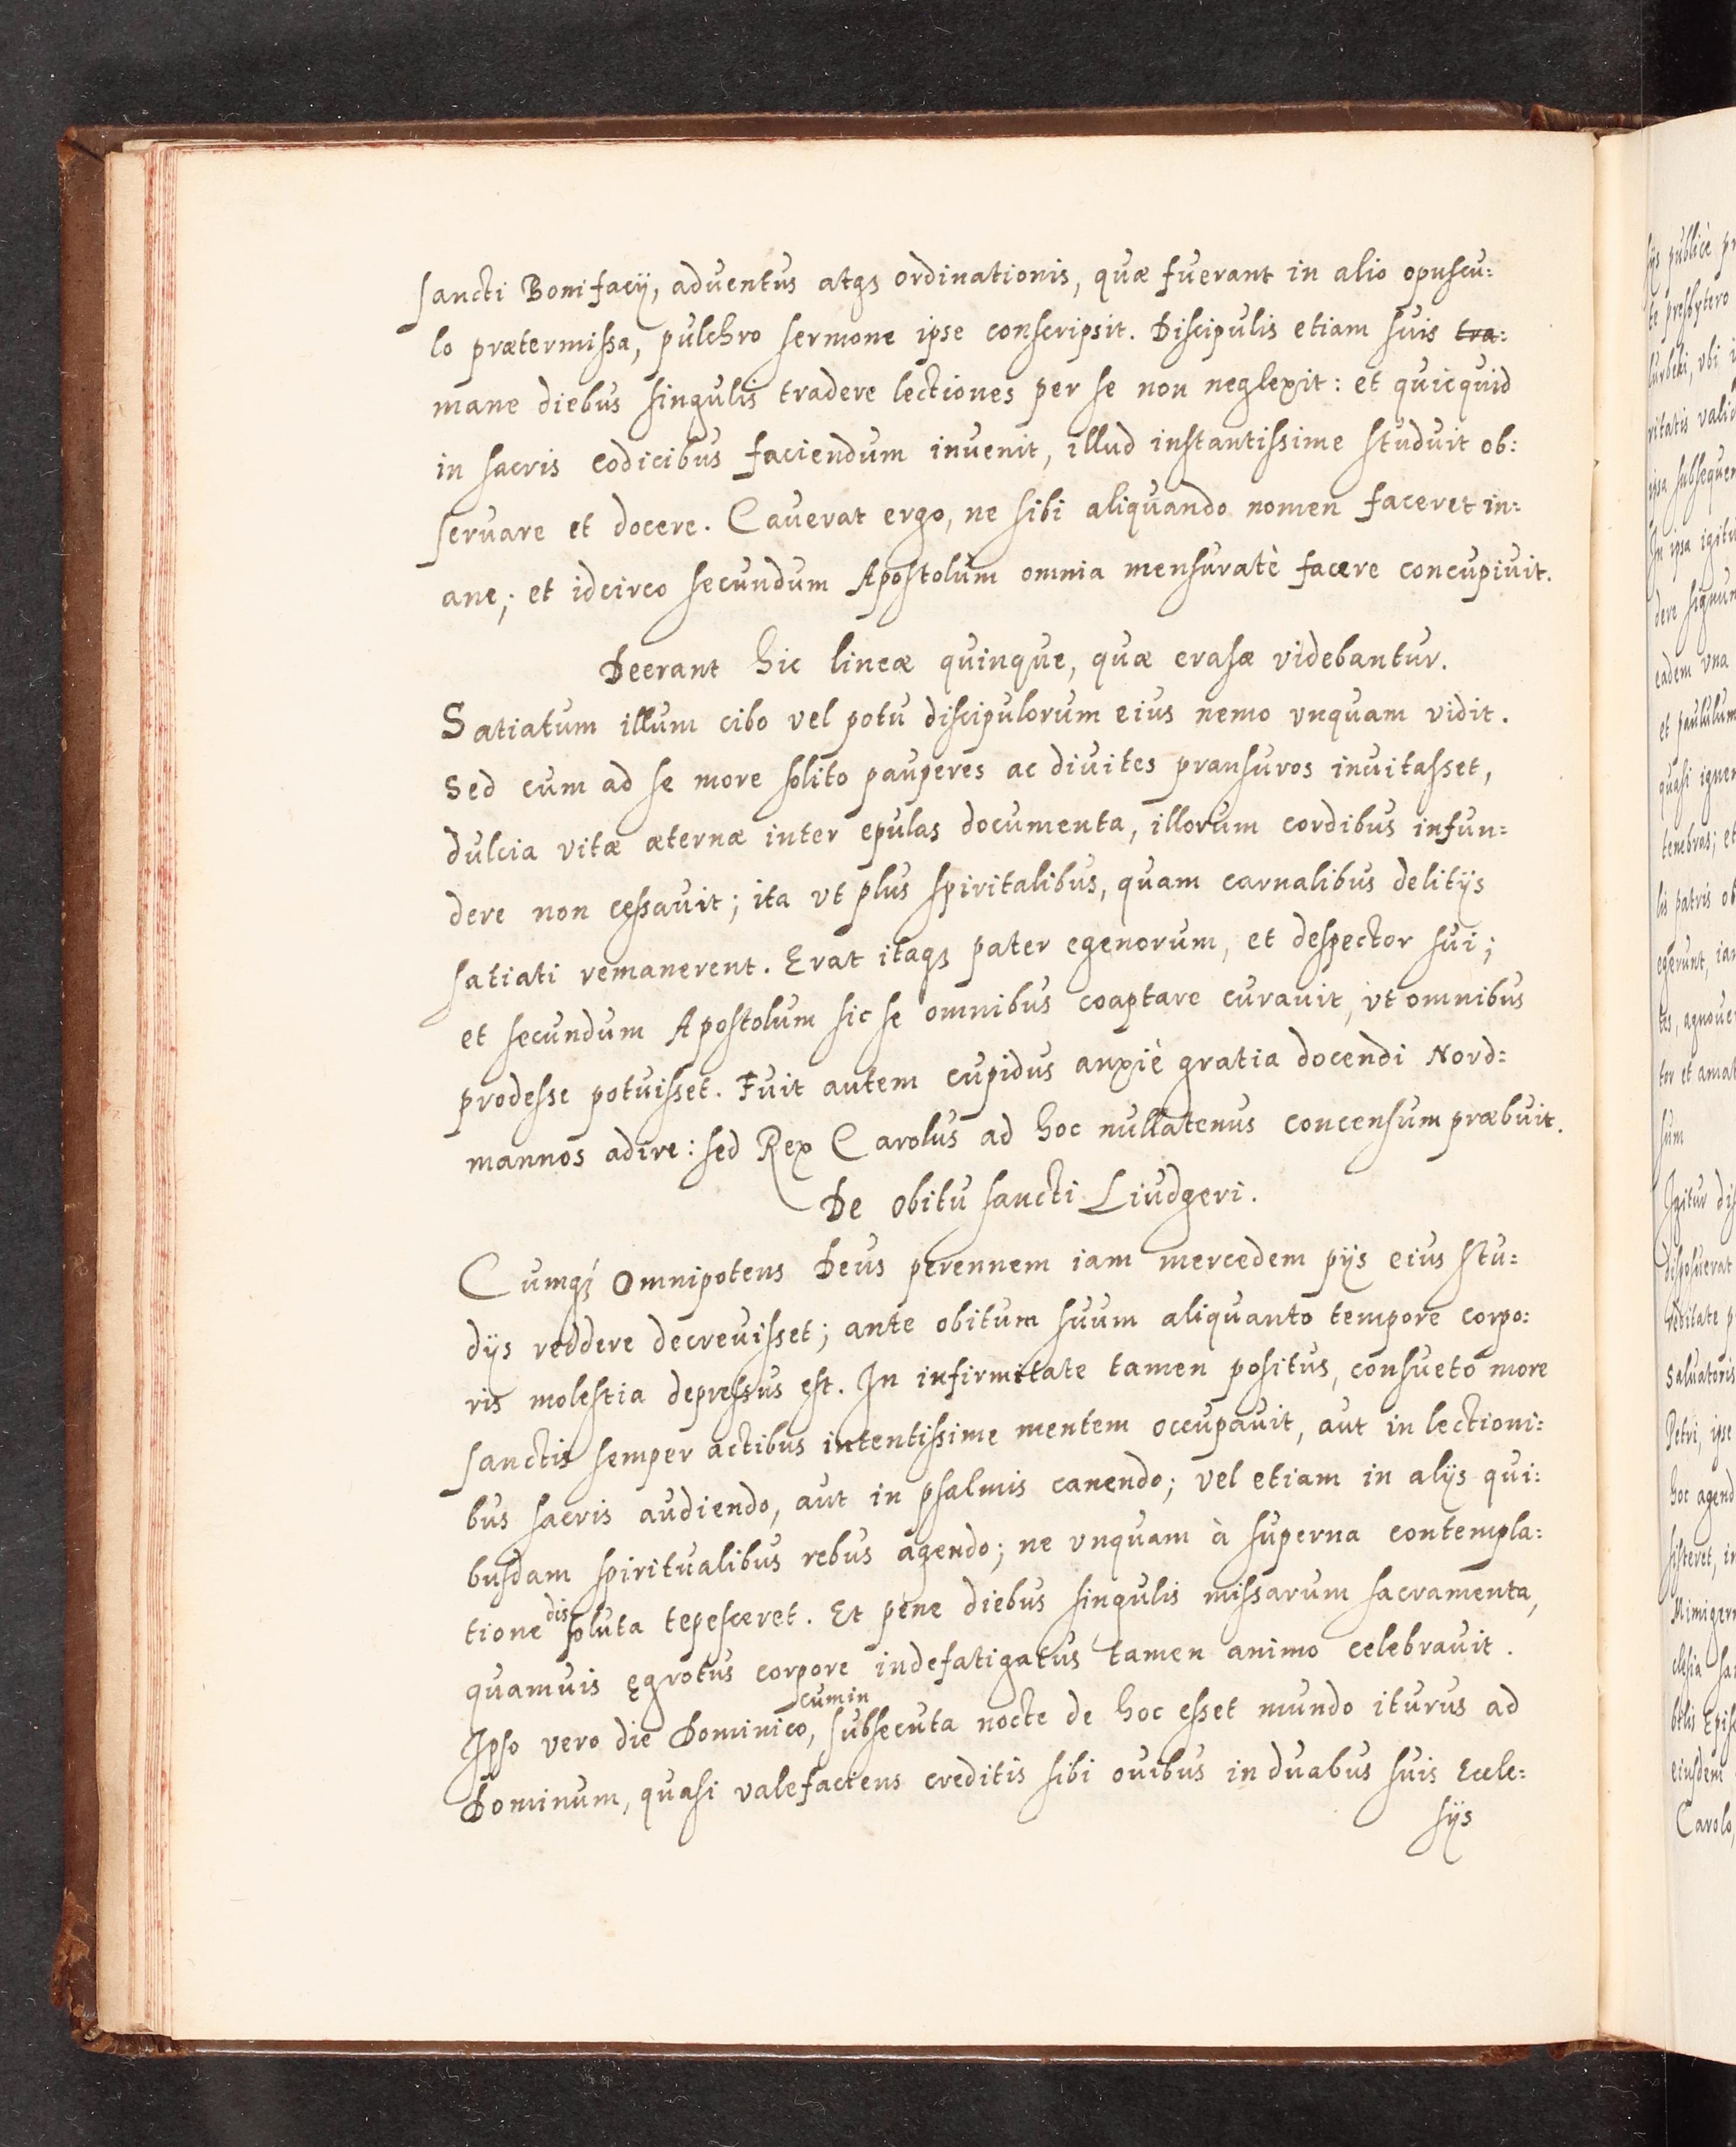 sancti Bonifacij, aduentus atqꝫ ordinationis, quæ fuerant in alio opuscu:
lo prætermissa, pulchro sermone ipse conscripsit. Discipulis etiam suis tra:
mane diebus singulis tradere lectiones per se non neglexit: et quicquid
in sacris codicibus faciendum inuenit, illud instantissime studuit ob:
seruare et docere. Cauerat ergo, ne sibi aliquando nomen faceret in:
ane; et idcirco secundum Apostolum omnia mensuratè facere concupiuit.
Deerant hic lineæ quinque, quæ erasæ videbantur.
Satiatum illum cibo vel potu discipulorum eius nemo vnquam vidit.
Sed cum ad se more solito pauperes ac diuites pransuros inuitasset,
dulcia vitæ æternæ inter epulas documenta, illorum cordibus infun:
dere non cessauit; ita vt plus spiritalibus, quam carnalibus delitijs
satiati remanerent. Erat itaqꝫ pater egenorum, et despector sui;
et secundum Apostolum sic se omnibus coaptare curauit, vt omnibus
prodesse potuisset. Fuit autem cupidus anxiè gratia docendi Nord:
mannos adire: sed Rex Carolus ad hoc nullatenus concensum præbuit.
De obitu sancti Liudgeri.
Cumqꝫ omnipotens Deus perennem iam mercedem pijs eius stu:
dijs reddere decreuisset; ante obitum suum aliquanto tempore corpo:
ris molestia depressus est. In infirmitate tamen positus, consueto more
sanctis semper actibus intentissime mentem occupauit, aut in lectioni:
bus sacris audiendo, aut in psalmis canendo; vel etiam in alijs qui:
busdam spiritualibus rebus agendo; ne vnquam à superna contempla:
tione dissoluta tepesceret. Et pene diebus singulis missarum sacramenta,
quamuis ęgrotus corpore indefatigatus tamen animo celebrauit.
Ipso vero die Dominico, cum in subsecuta nocte de hoc esset mundo iturus ad
Dominum, quasi valefaciens creditis sibi ouibus in duabus suis Eccle:
sijs